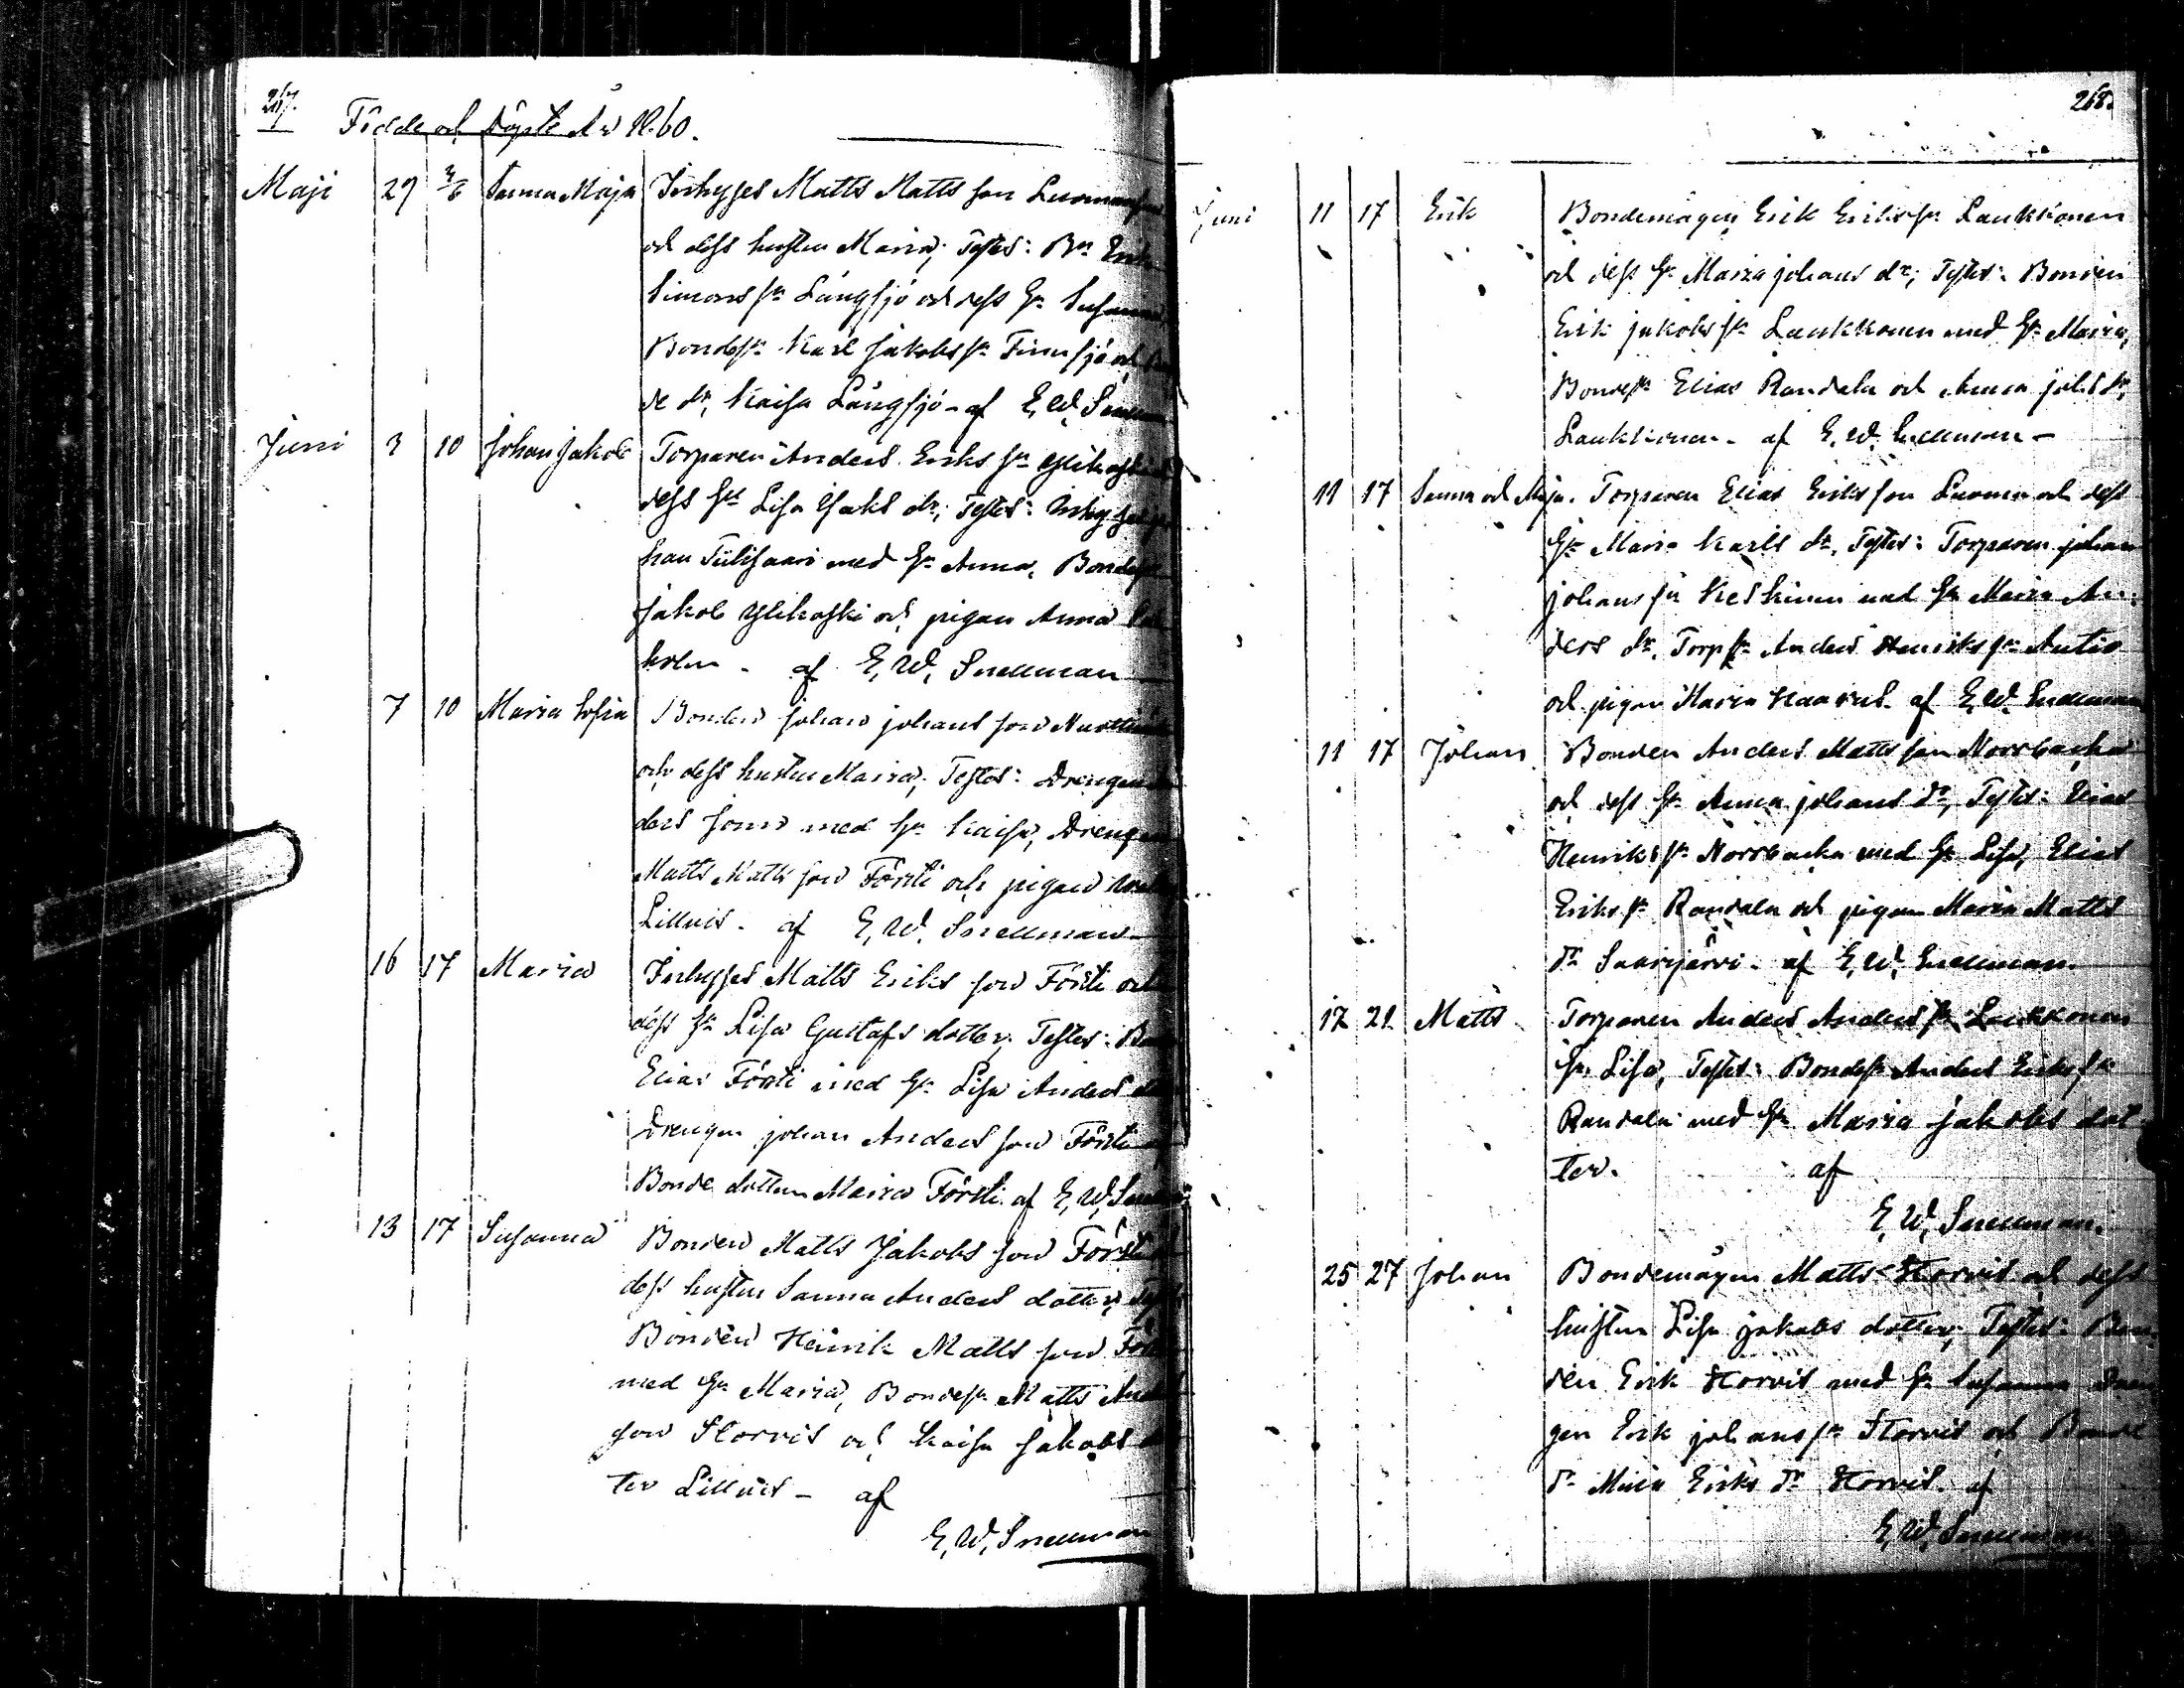 267.
Födde och Döpte År 1860.
Maji 27 3/6 Sanna Maja Inhyses Matts Matts son Luoma
och dess hustru Maria; Testes: Bn Erik
Simons sn Långsjö och dess h. Susanna
Bondesn Karl Jakobs sn Finnsjö och
de dr, Kaisa Långsjö - af E. W. Snellman
Juni 3 10 Johan Jakob Torparen Anders Eriks sn Ylikoski
dess hu Lisa Isaks dr; Testes: Inhyses
han Tulisaari med hu Anna, Bondesn
Jakob Ylikoski och pigan Anna
holm - af E. W. Snellman
7 10 Maria Sofia Bonden Johan Johans son
och dess hustru Maria; Testes: Drengen
ders sons med hu Kaisa, Drengen
Matts Matts son Försti och pigan
Lillvis - af E. W. Snellman
16 17 Maria Inhyses Matts Eriks son Försti och
dess hu Lisa Gustafs dotter; Testes:
Elias Försti med hu Lisa Anders
Drengen Johan Anders son Försti
Bonde dottern Maria Försti af E. W. Snellman
13 17 Susanna Bonden Matts Jakobs son Försti
dess hustru Sanna Anders dotter,
Bonden Henrik Matts son
med hu Maria, Bondesn Matts
son Storvis och Kaisa Jakobs
ter Lillvis - af
E. W. Snellman
268.
Juni 11 17 Erik Bondemågen Erik Eriks sn Laukkonen
och dess hu Maria Johans dr; Testes: Bonden
Erik Jakobs sn Laukkonen med hu Maria,
Bondesn Elias Randala och Anna Johs dr,
Laukkonen - af E. W. Snellman -
11 17 Sanna och Maja. Torparen Elias Eriks son Luoma och dess
hu Maria Karls dr, Testes: Torparen Johan
Johans sn Keskinen med hu Maria An-
ders dr, Torpsn Anders Henriks sn Antio
och pigan Maria af E. W. Snellman
11 17 Johan Bonden Anders Matts son Norrbacka
och dess hu Anna Johans dr, Testes: Elias
Henriks sn Norrbacka med hu Lisa, Elias
Eriks sn Randala och pigan Maria Matts
dr Saarijärvi - af E. W. Snellman
17 21 Matts Torparen Anders Anders sn Laukkonen
hu Lisa, Testes: Bondesn Anders Eriks sn
Randala med hu Maria Jakobs dot-
ter. af
E. W. Snellman.
25 27 Johan Bondemågen Matts Storvis och dess
hustru Lisa Jakobs dotter; Testes: Bon-
den Erik Storvis med hu Susanna Dren
gen Erik Johans sn Storvis och Bonde
dr Maria Eriks dr Storvis. af
E. W. Snellman